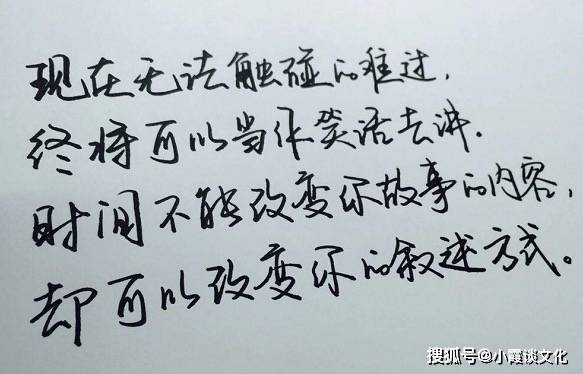 现在无法触碰的难过,
终将可以当作笑话去讲.
时间不能改变你故事的内容,
却可以改变你的叙述方式。
搜狐号@小霞谈文化